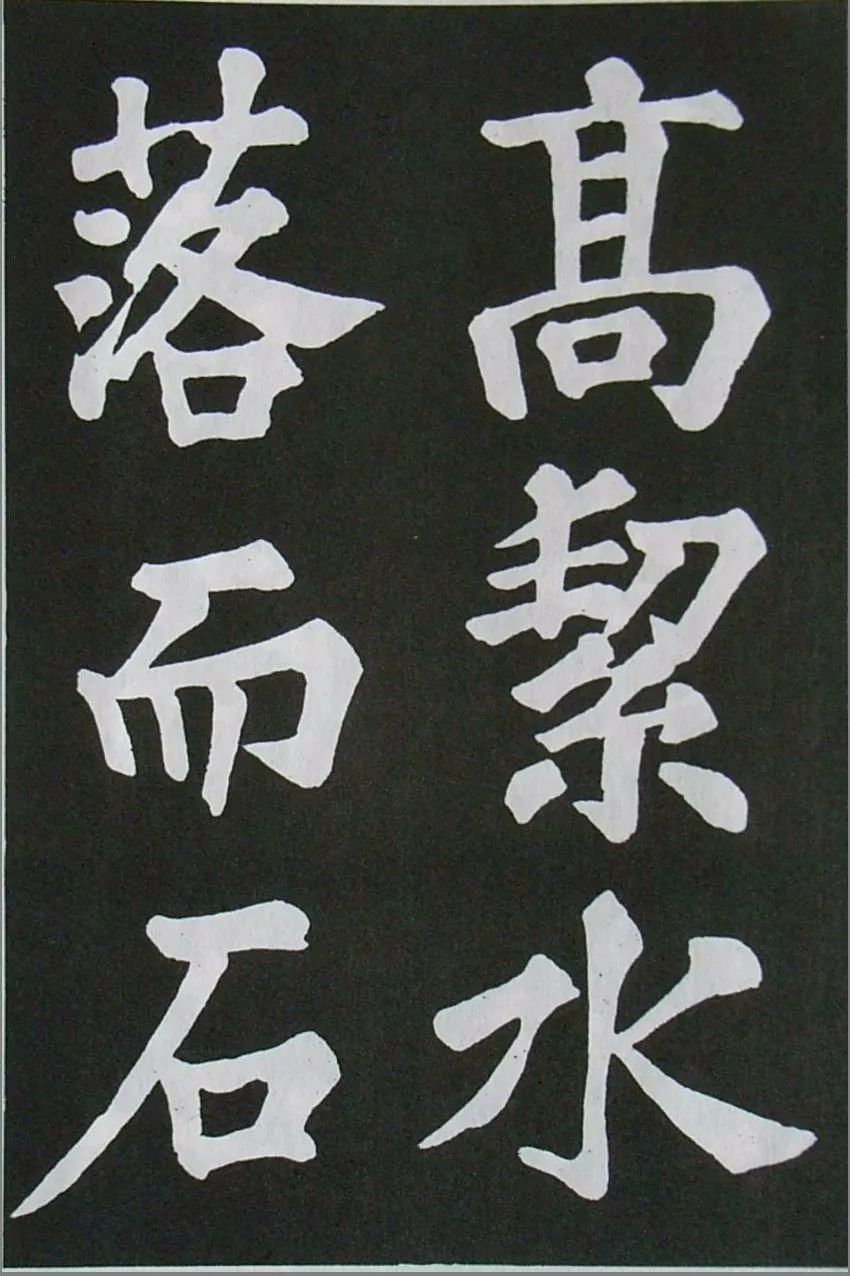 髙絜水
落而石